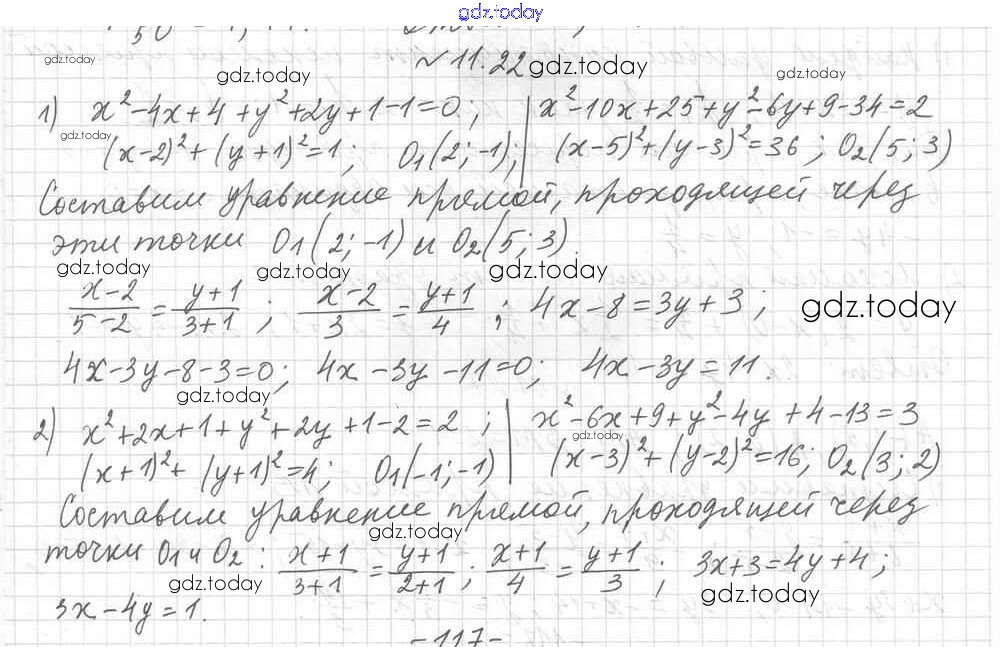 gdz.today
№ 11.22 gdz.today
gdz.today gdz.today gdz.today
1) x²-4x+4+y²+2y+1-1=0; | x²-10x+25+y²-6y+9-34=2
gdz.today
(x-2)²+(y+1)²=1; O₁(2;-1); | (x-5)²+(y-3)²=36; O₂(5;3)
Составим уравнение прямой, проходящей через
эти точки O₁(2;-1) и O₂(5;3).
gdz.today gdz.today gdz.today
(x-2)/(5-2) = (y+1)/(3+1); (x-2)/3 = (y+1)/4; 4x-8=3y+3; gdz.today
4x-3y-8-3=0; 4x-3y-11=0; 4x-3y=11.
gdz.today
2) x²+2x+1+y²+2y+1-2=2; | x²-6x+9+y²-4y+4-13=3
gdz.today
(x+1)²+(y+1)²=4; O₁(-1;-1) | (x-3)²+(y-2)²=16; O₂(3;2)
Составим уравнение прямой, проходящей через
gdz.today
точки O₁ и O₂: (x+1)/(3+1) = (y+1)/(2+1); (x+1)/4 = (y+1)/3; 3x+3=4y+4;
gdz.today gdz.today gdz.today
3x-4y=1.
-117-